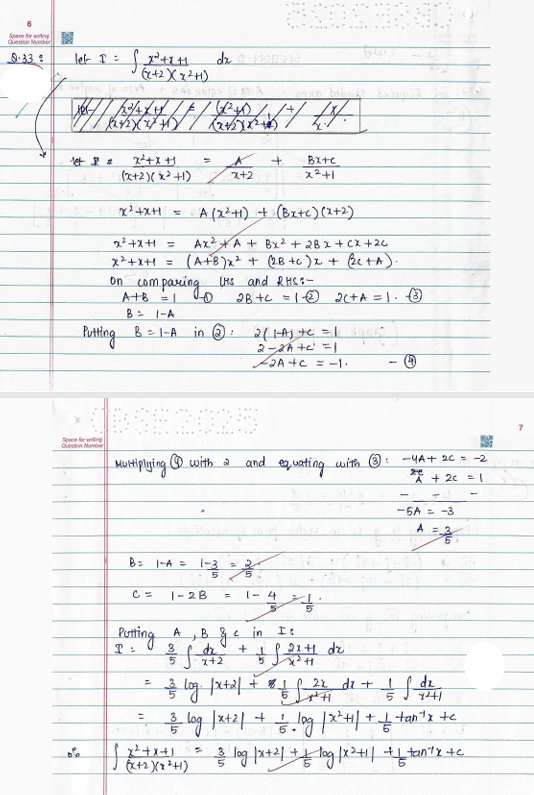 6
Space for writing
Question Number
Q.33: let I = ∫ x²+x+1 / (x+2)(x²+1) dx
let I = x²+x+1 / (x+2)(x²+1) = A / x+2 + Bx+c / x²+1
x²+x+1 = A(x²+1) + (Bx+c)(x+2)
x²+x+1 = Ax²+A + Bx² + 2Bx + cx + 2c
x²+x+1 = (A+B)x² + (2B+c)x + (2c+A).
On comparing LHS and RHS:-
A+B = 1 -① 2B+c = 1-② 2c+A = 1. -③
B = 1-A
Putting B = 1-A in ②: 2(1-A)+c = 1
2-2A+c = 1
-2A+c = -1. -④
CBSE 2025
7
Space for writing
Question Number
Multiplying ④ with 2 and equating with ③: -4A+ 2c = -2
A + 2c = 1
- - -
-5A = -3
A = 3/5
B = 1-A = 1-3/5 = 2/5.
C = 1-2B = 1- 4/5 = 1/5.
Putting A, B & c in I:
I = 3/5 ∫ dx / x+2 + 1/5 ∫ 2x+1 / x²+1 dx
= 3/5 log |x+2| + 1/5 ∫ 2x / x²+1 dx + 1/5 ∫ dx / x²+1
= 3/5 log |x+2| + 1/5 log |x²+1| + 1/5 tan⁻¹x + c
∴ ∫ x²+x+1 / (x+2)(x²+1) = 3/5 log|x+2| + 1/5 log|x²+1| + 1/5 tan⁻¹x + c